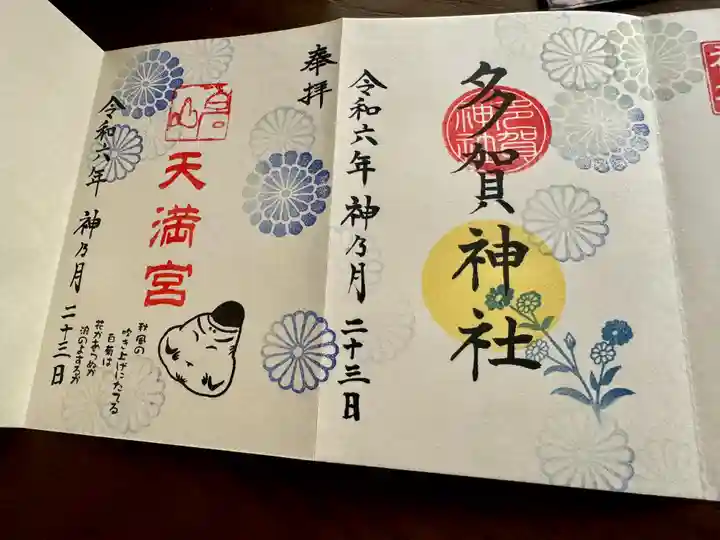 多賀神社
多賀
神社
令和六年 神乃月 二十三日
奉拝
白山
天満宮
秋風の
吹き上げにたてる
白菊は
花かあらぬか
波のよするか
令和六年 神乃月 二十三日